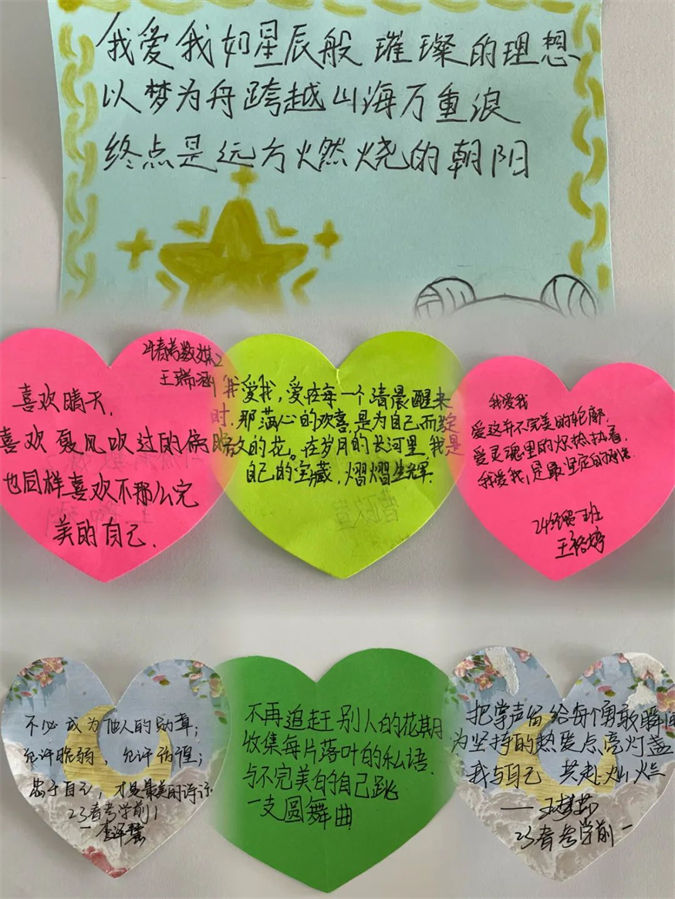 我爱我如星辰般璀璨的理想
以梦为舟跨越山海万重浪
终点是远方火燃烧的朝阳
王瑞涵
喜欢晴天,
喜欢夏风吹过的傍晚
也同样喜欢不那么完
美的自己.
我爱我,爱在每一个清晨醒来
时,那满心的欢喜,是为自己而绽
的花。在岁月的长河里,我是
自己的宝藏,熠熠生辉.
我爱我
爱这并不完美的轮廓,
爱灵魂里的炽热执着.
我爱我,是最坚定的
班
王
不必成为他人的勋章;
允许脆弱,允许彷徨;
忠于自己,才是最美的诗
23春考学前1
不再追赶别人的花期
收集每片落叶的私语
与不完美的自己跳
一支圆舞曲
把掌声留给每个勇敢瞬间
为坚持的热爱点亮灯盏
我与自己 共赴灿烂
23春考学前一